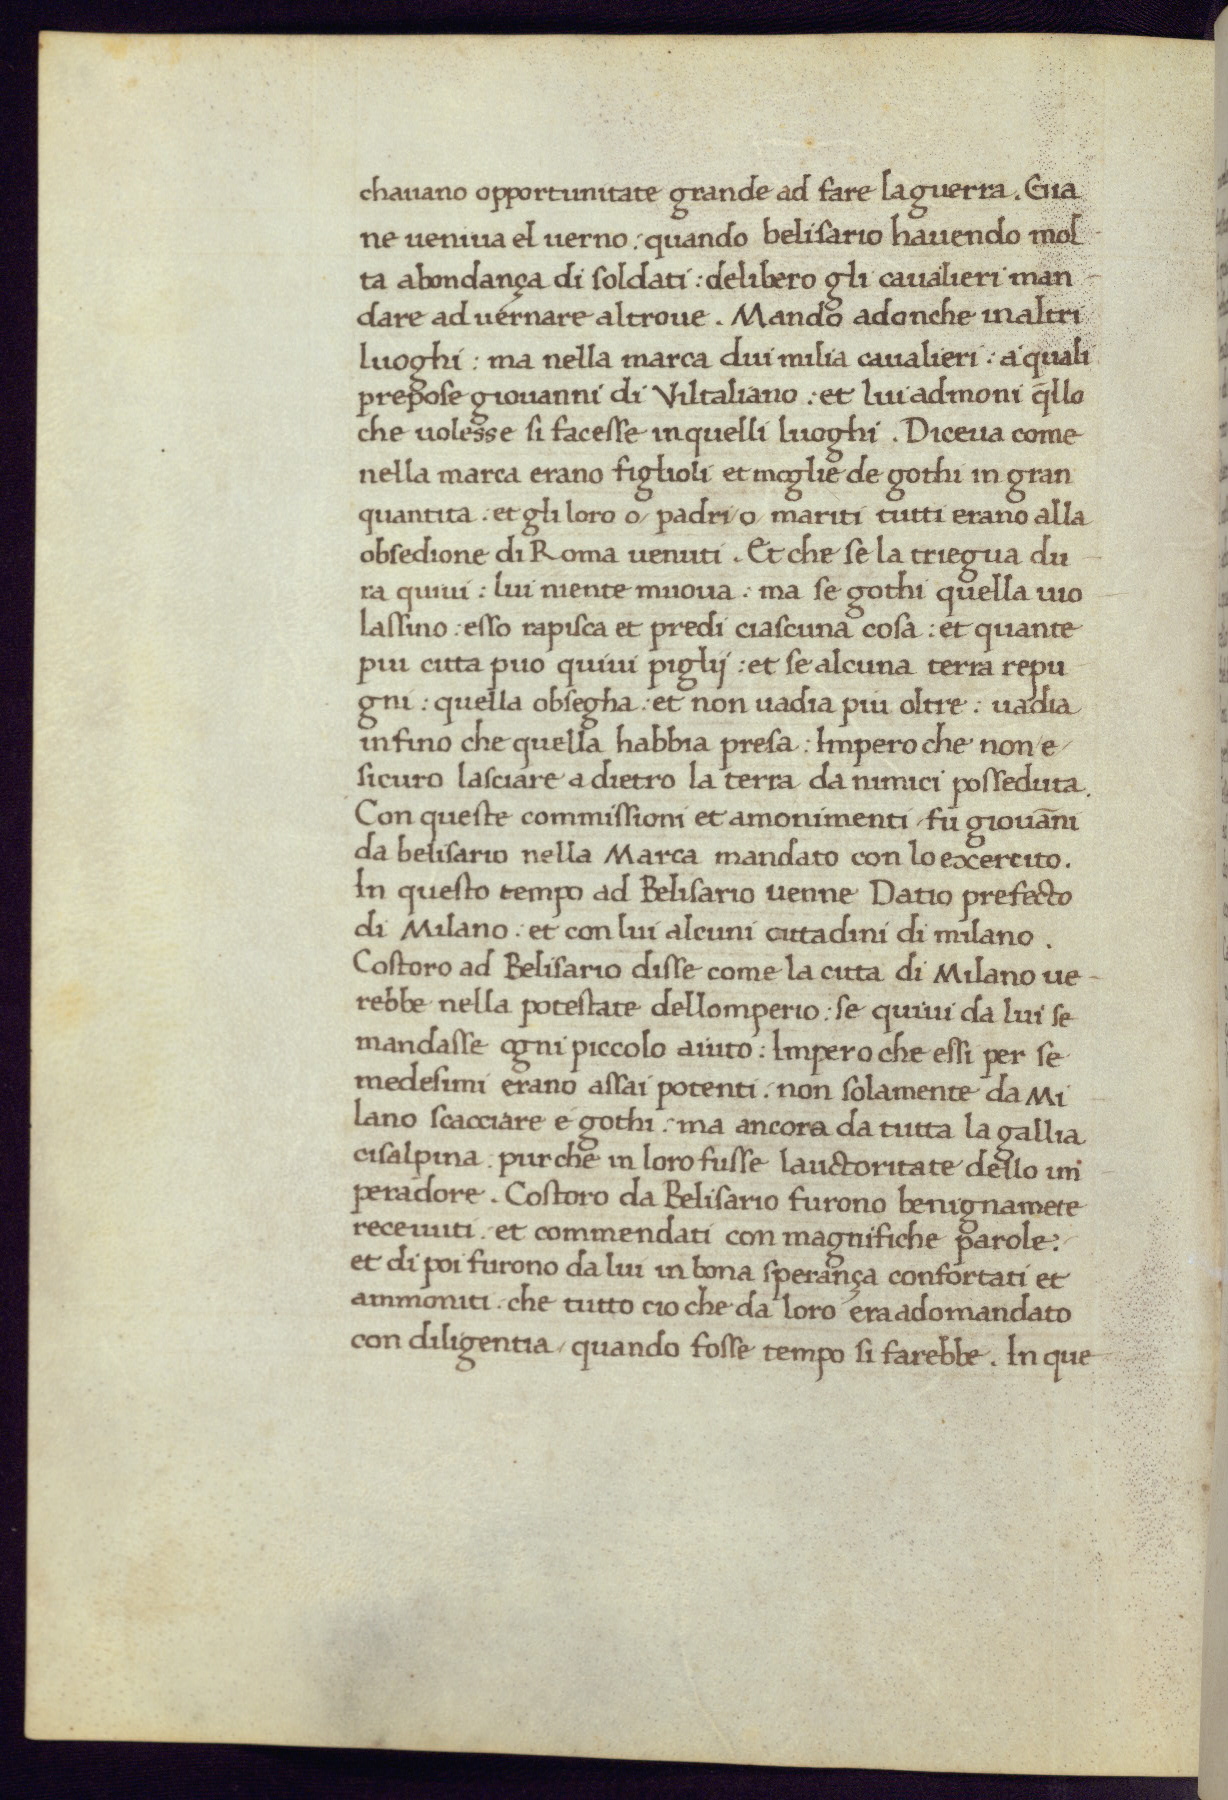 chauano opportunitate grande ad fare la guerra. Gia
ne ueniua el uerno: quando belisario hauendo mol
ta abondança di soldati: delibero gli caualieri man
dare ad uernare altroue. Mando adonche in altri
luoghi: ma nella marca dui milia caualieri: a quali
prepose giouanni di Viltaliano: et lui admoni q̄llo
che uolesse si facesse in quelli luoghi. Diceua come
nella marca erano figlioli et moglie de gothi in gran
quantita. et gli loro o/ padri/o/ mariti tutti erano alla
obsedione di Roma uenuti. Et che se la triegua du
ra quiui: lui niente muoua: ma se gothi quella uio
lassino: esso rapisca et predi ciascuna cosa: et quante
piu citta puo quiui piglij: et se alcuna terra repu
gni: quella obsegha: et non uadia piu oltre: uadia
infino che quella habbia presa: Impero che non e/
sicuro lasciare a dietro la terra da nimici posseduta.
Con queste commissioni et amonimenti/ fu giouāni
da belisario nella Marca mandato con lo exercito.
In questo tempo ad Belisario uenne Datio prefecto
di Milano: et con lui alcuni cittadini di milano.
Costoro ad Belisario disse come la citta di Milano ue
rebbe nella potestate dellomperio: se quiui da lui se
mandasse ogni piccolo aiuto: Impero che essi per se
medesimi erano assai potenti: non solamente da Mi
lano scacciare e gothi: ma ancora da tutta la gallia
cisalpina: pur che in loro fusse lauctoritate dello im
peradore. Costoro da Belisario furono benignamete
receuuti: et commendati con magnifiche parole:
et di poi furono da lui in bona sperança confortati et
ammoniti: che tutto cio che da loro era adomandato
con diligentia/ quando fosse tempo si farebbe. In que